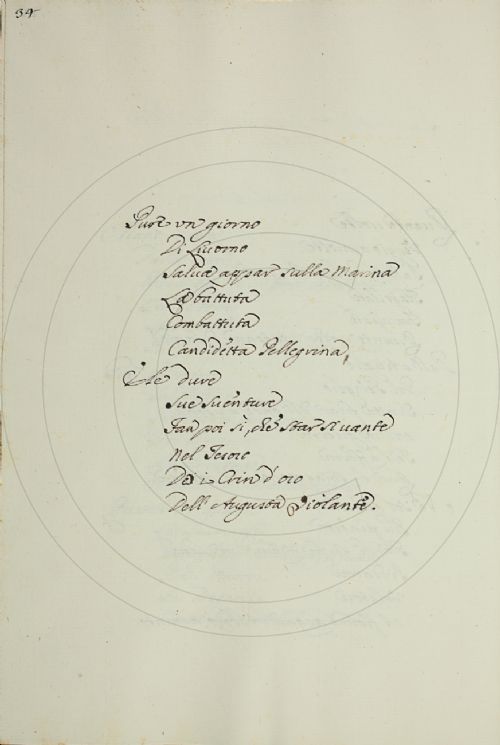 34
Pur' un giorno
Di Livorno
Salva appar sulla Marina
La battuta
Combattuta
Candidetta Pellegrina,
E le dure
Sue sventure
Fan poi sì, che star si vante
Nel Tesoro
De i Crin d'oro
Dell' Augusta Violante.